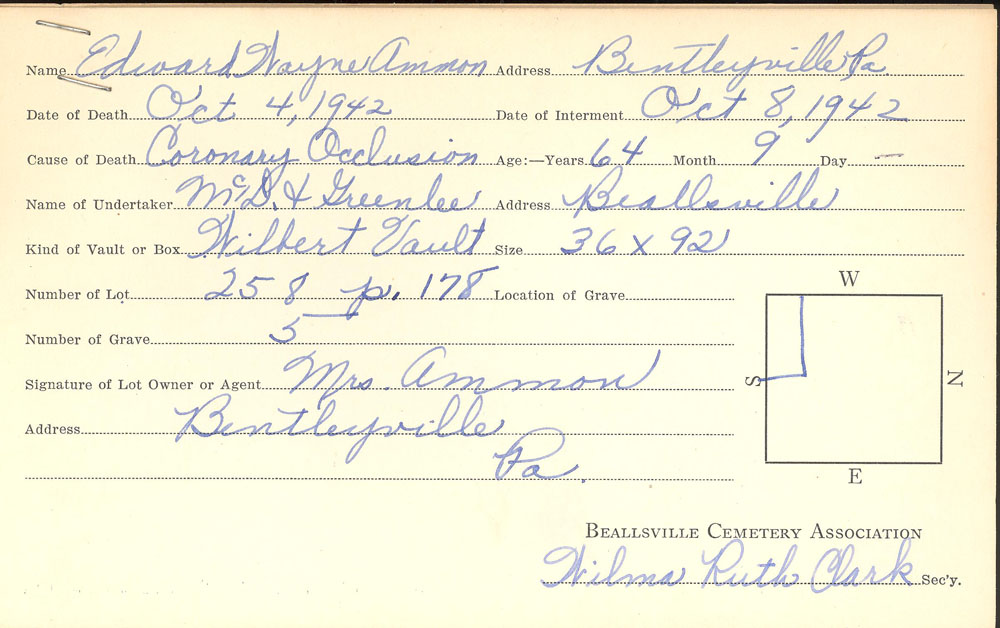 Name Edward Wayne Ammon Address Bentleyville Pa.
Date of Death Oct 4, 1942 Date of Interment Oct 8, 1942
Cause of Death Coronary Occlusion Age:—Years 64 Month 9 Day —
Name of Undertaker McD. & Greenlee Address Beallsville
Kind of Vault or Box Wilbert Vault Size 36 x 92
Number of Lot 258 p. 178 Location of Grave
W
Number of Grave 5
S
N
Signature of Lot Owner or Agent Mrs. Ammon
Address Bentleyville
Pa.
E
Beallsville Cemetery Association
Wilma Ruth Clark Sec'y.